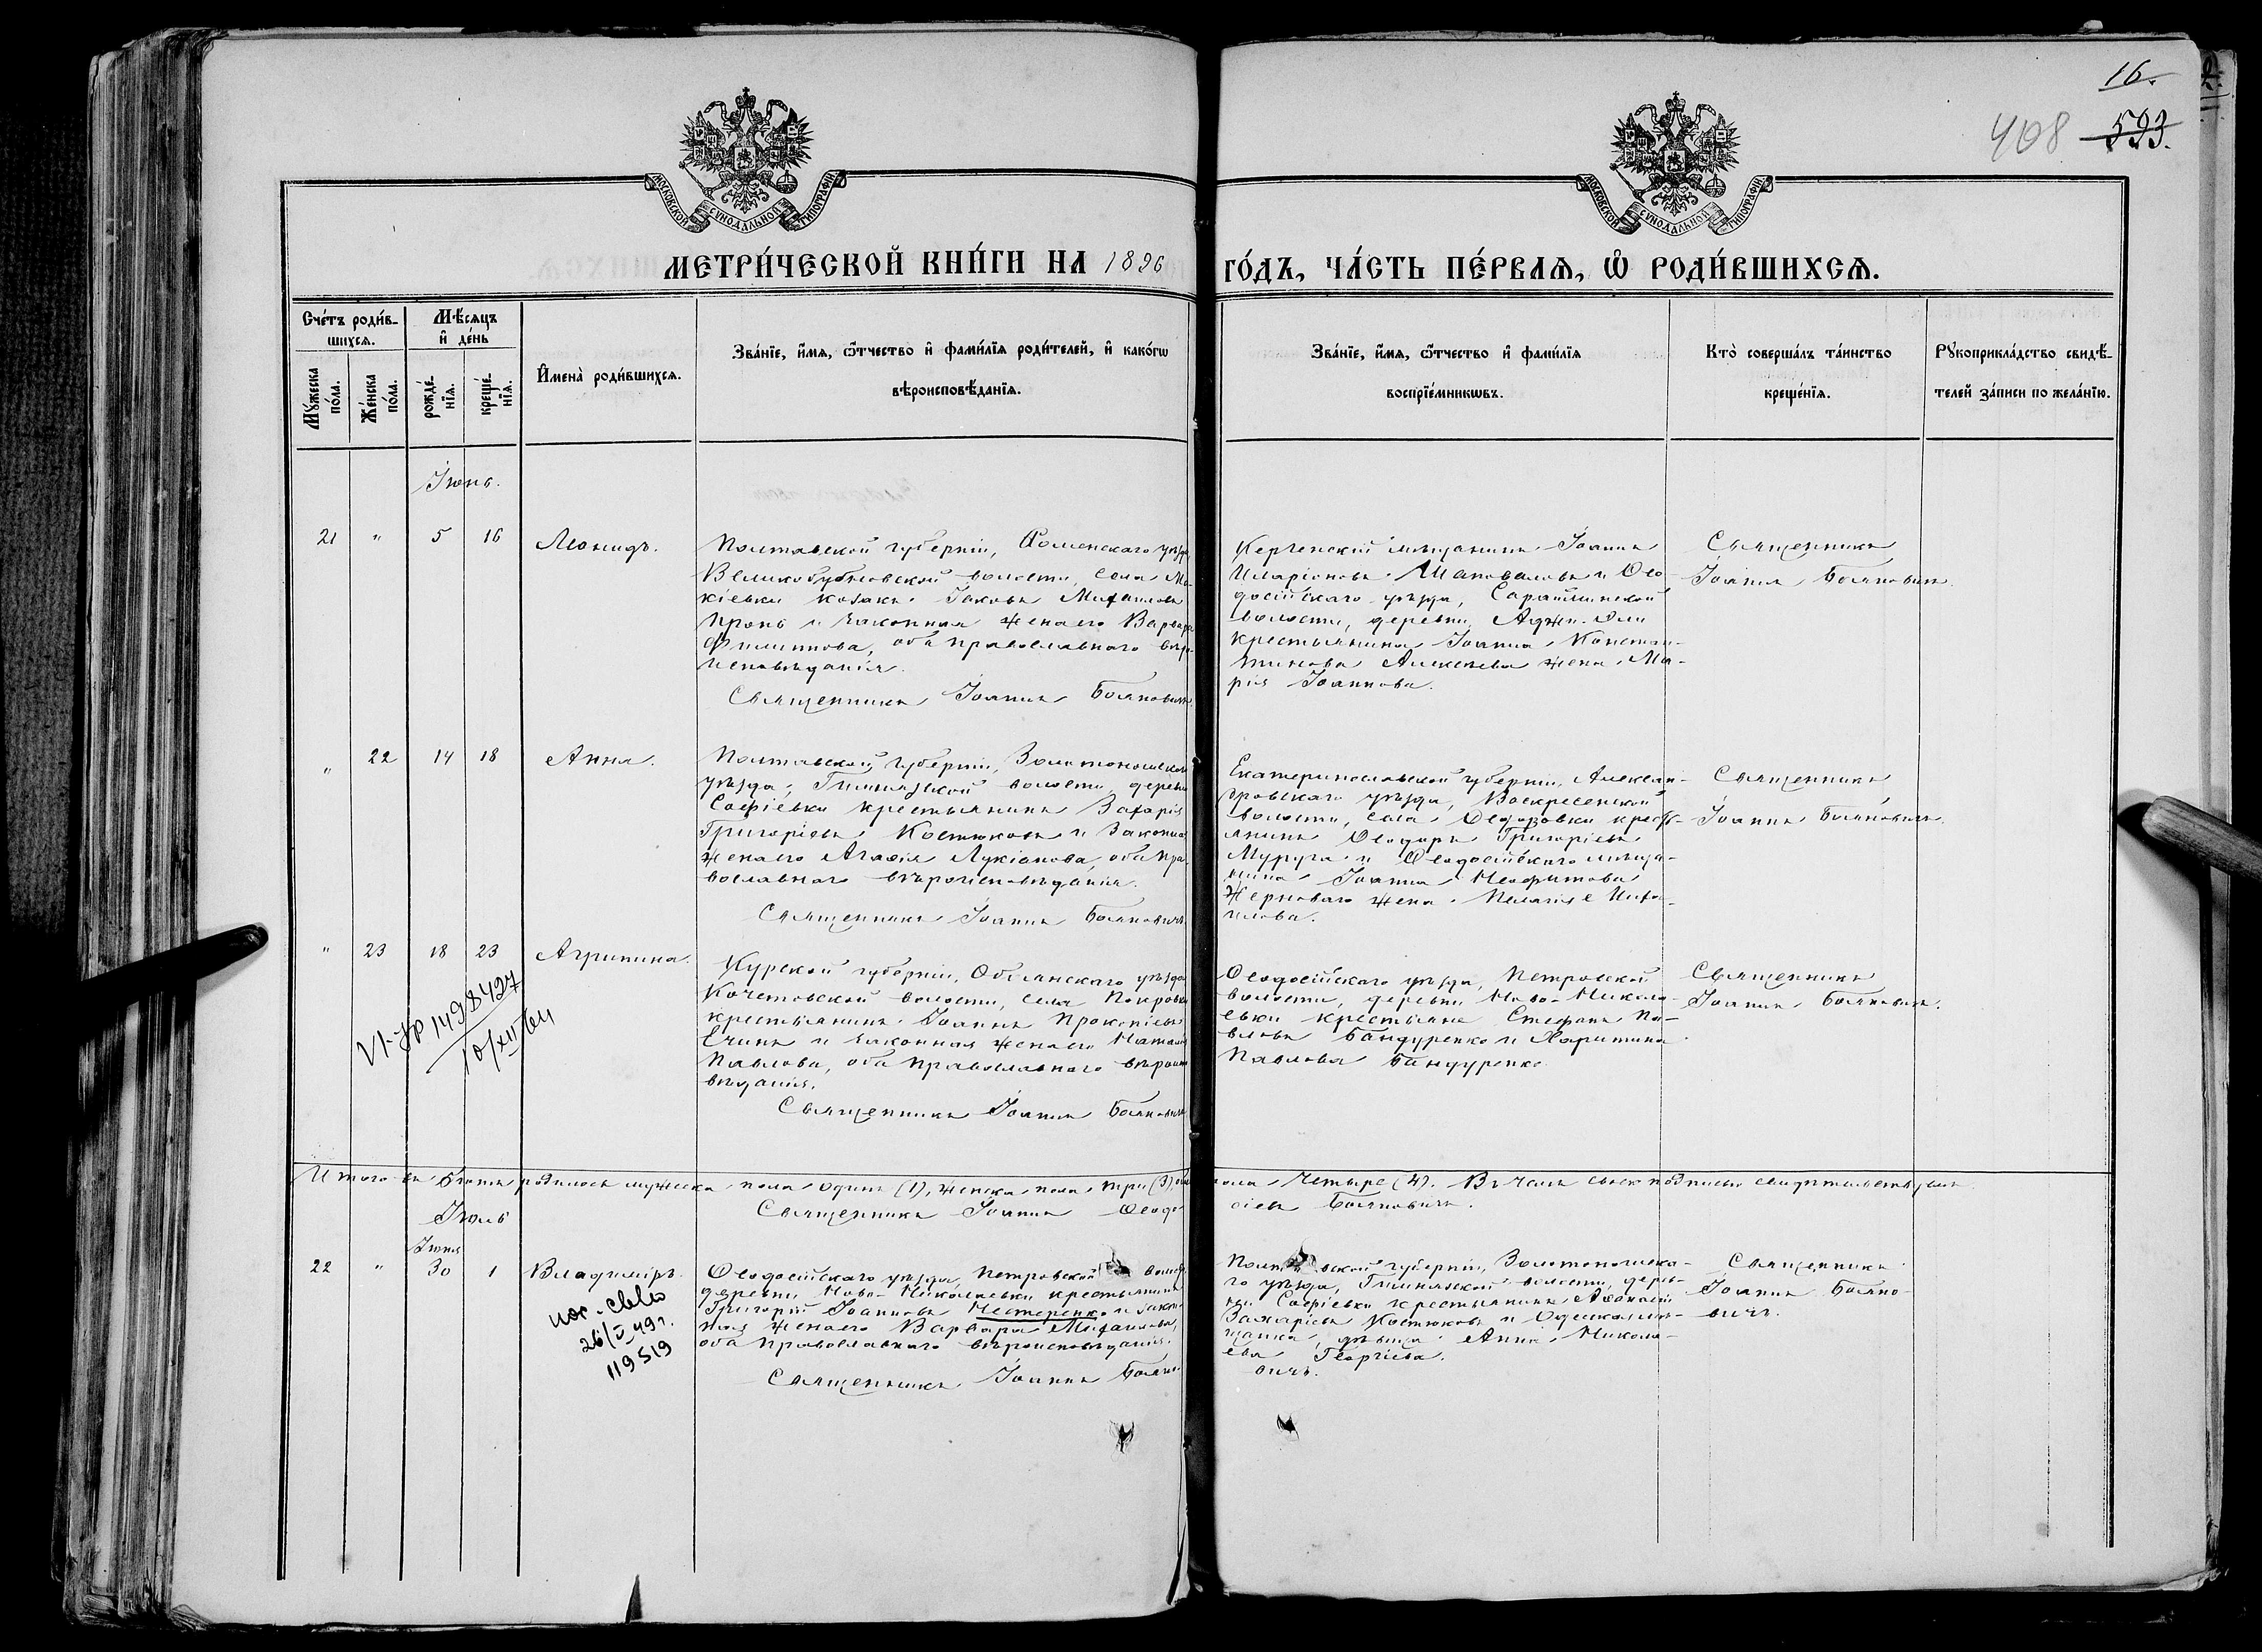 16.
408 593.
МОСКОВСКОЙ СѴНОДАЛЬНОЙ ТИПОГРАФІИ
МОСКОВСКОЙ СѴНОДАЛЬНОЙ ТИПОГРАФІИ
МЕТРИ́ЧЕСКОЙ КНИ́ГИ НА 1896 ГО́ДЪ, ЧА́СТЬ ПЕ́РВАѦ, Ѡ҆ РОДИ́ВШИХСѦ.
Сче́тъ роди́в-
шихсѧ.
Мꙋ́жеска по́ла.
Же́нска по́ла.
Мѣ́сѧцъ
и҆ де́нь
рожде́-
нїѧ.
креще́-
нїѧ.
И҆мена̀ роди́вшихсѧ.
Зва́нїе, и҆́мѧ, ѻ҆́тчество и҆ фами́лїѧ роди́телей, и҆ како́гѡ
вѣроисповѣ́данїѧ.
Зва́нїе, и҆́мѧ, ѻ҆́тчество и҆ фами́лїѧ
воспрїе́мникѡвъ.
Кто̀ соверша́лъ та́инство
креще́нїѧ.
Рꙋкоприкла́дство свидѣ́-
телей за́писи по жела́нїю.
Іюнь.
21 " 5 16 Леонидъ.
Полтавской губерніи, Роменскаго уѣзда
Великобубновской волости, села Ма-
кіевки козакъ Іаковъ Михаиловъ
Пронь и законная жена его Варвара
Филиппова, оба православнаго вѣро-
исповѣданія.
Священникъ Іоаннъ Бояновичъ.
Керченскій мѣщанинъ Іоаннъ
Иларіоновъ Шаповаловъ и Ѳео-
досійскаго уѣзда, Сарайминской
волости, деревни Аджи-Эли
крестьянина Іоанна Констан-
тинова Алексѣева жена Ма-
рія Іоаннова.
Священникъ
Іоаннъ Бояновичъ.
" 22 14 18 Анна.
Полтавской губерніи, Золотоношскаго
уѣзда, Гельмязской волости, деревни
Софіевки крестьянинъ Захарія
Григоріевъ Костюковъ и законная
жена его Агафія Лукіанова, оба пра-
вославнаго вѣроисповѣданія.
Священникъ Іоаннъ Бояновичъ.
Екатеринославской губерніи, Алексан-
дровскаго уѣзда, Воскресенской
волости, села Ѳедоровки кресть-
янинъ Ѳеодоръ Григоріевъ
Муруга и Ѳеодосійскаго мѣща-
нина Іоанна Неофитова
Жерноваго жена Пелагія Миха-
илова.
Священникъ
Іоаннъ Бояновичъ.
" 23 18 23 Агрипина.
1498427
10/XII 64
Курской губерніи, Обоянскаго уѣзда
Кочетовской волости, села Покровки
крестьянинъ Іоаннъ Прокопіевъ
и законная жена его Наталія
Павлова, оба православнаго вѣроиспо-
вѣданія.
Священникъ Іоаннъ Бояновичъ
Ѳеодосійскаго уѣзда, Петровской
волости, деревни Ново-Никола-
евки крестьяне Стефанъ Па-
вловъ Бандуренко и Харитина
Павлова Бандуренко.
Священникъ
Іоаннъ Бояновичъ.
Итого въ Іюнѣ родилось мужеска пола одинъ (1), женска пола три (3), обоего пола четыре (4). Въ чемъ своею подписью свидѣтельствуемъ
Священникъ Іоаннъ Ѳеодосіевъ Бояновичъ.
Іюль
Іюня
22 " 30 1 Владиміръ.
26/V 49 г.
119519
Ѳеодосійскаго уѣзда, Петровской волости
деревни Ново-Николаевки крестьянинъ
Григорій Іоанновъ Нестеренко и закон-
ная жена его Варвара Михаилова,
оба православнаго вѣроисповѣданія.
Священникъ Іоаннъ Бояно-
вичъ.
Полтавской губерніи, Золотоношска-
го уѣзда, Гельмязской волости, дерев-
ни Софіевки крестьянинъ Аѳанасій
Захаріевъ Костюковъ и Одесская мѣ-
щанка дѣвица Анна Никола-
ева Георгіева.
Священникъ
Іоаннъ Бояно-
вичъ.